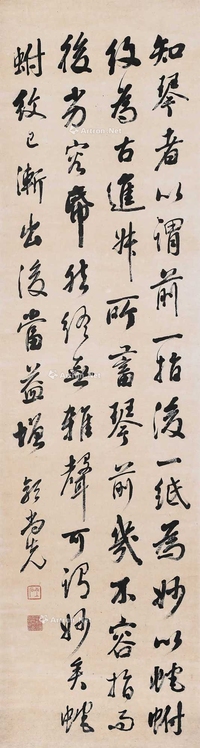 知琴者以謂前一指後一紙為妙以蛇蚹
紋為古進叔所蓄琴前幾不容指而
後劣容帋然終無雜聲可謂妙矣蛇
蚹紋已漸出後當益增 郭尚先